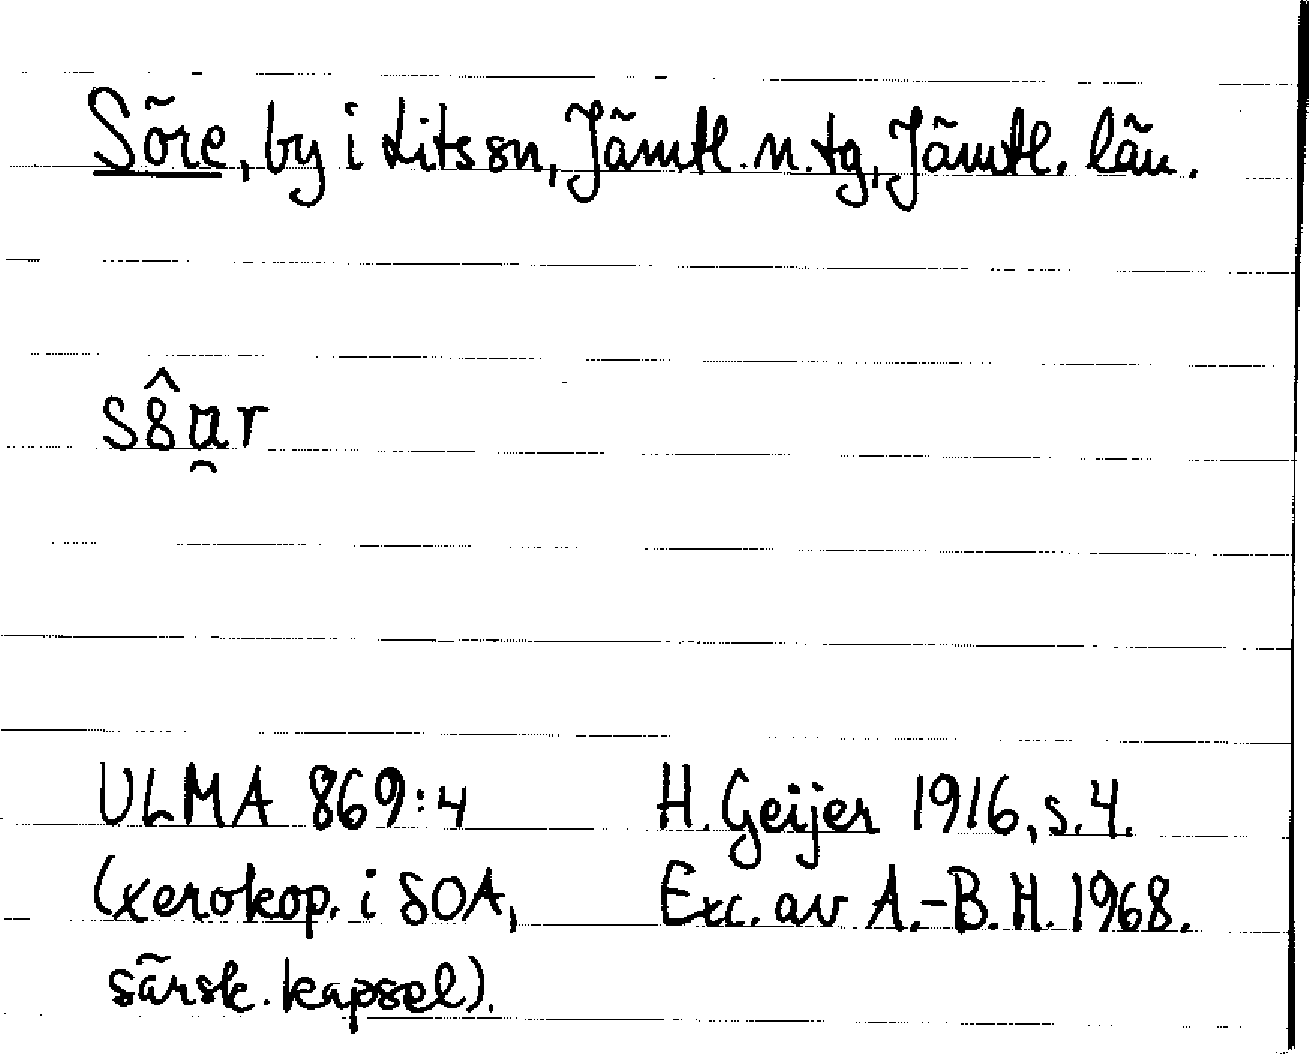 Söre, by i Lits sn, Jämtl. n. tg, Jämtl. län.
ULMA 869:4 H. Geijer 1916, s. 4.
(xerokop. i SOA, Exc. av A.-B. H. 1968.
särsk. kapsel).